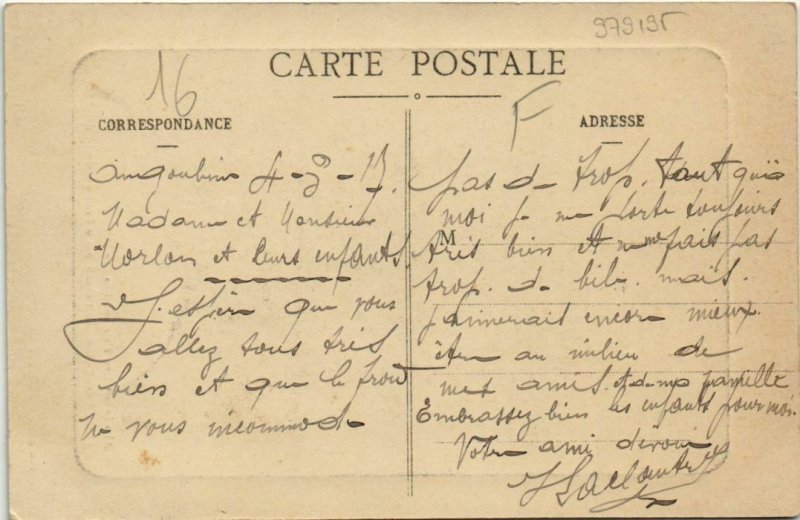 979195
16
F
CARTE POSTALE
CORRESPONDANCE
ADRESSE
M
4-3-17.
Madame et Monsieur
Morlon et leurs enfants.
J'espère que vous
allez tous très
bien et que le froid
ne vous incommode
pas de trop. tant qu'à
moi je me porte toujours
très bien et ne me fais pas
trop de bile. mais
j'aimerais encore mieux
être au milieu de
mes amis et de ma famille
Embrassez bien les enfants pour moi.
Votre ami dévoué